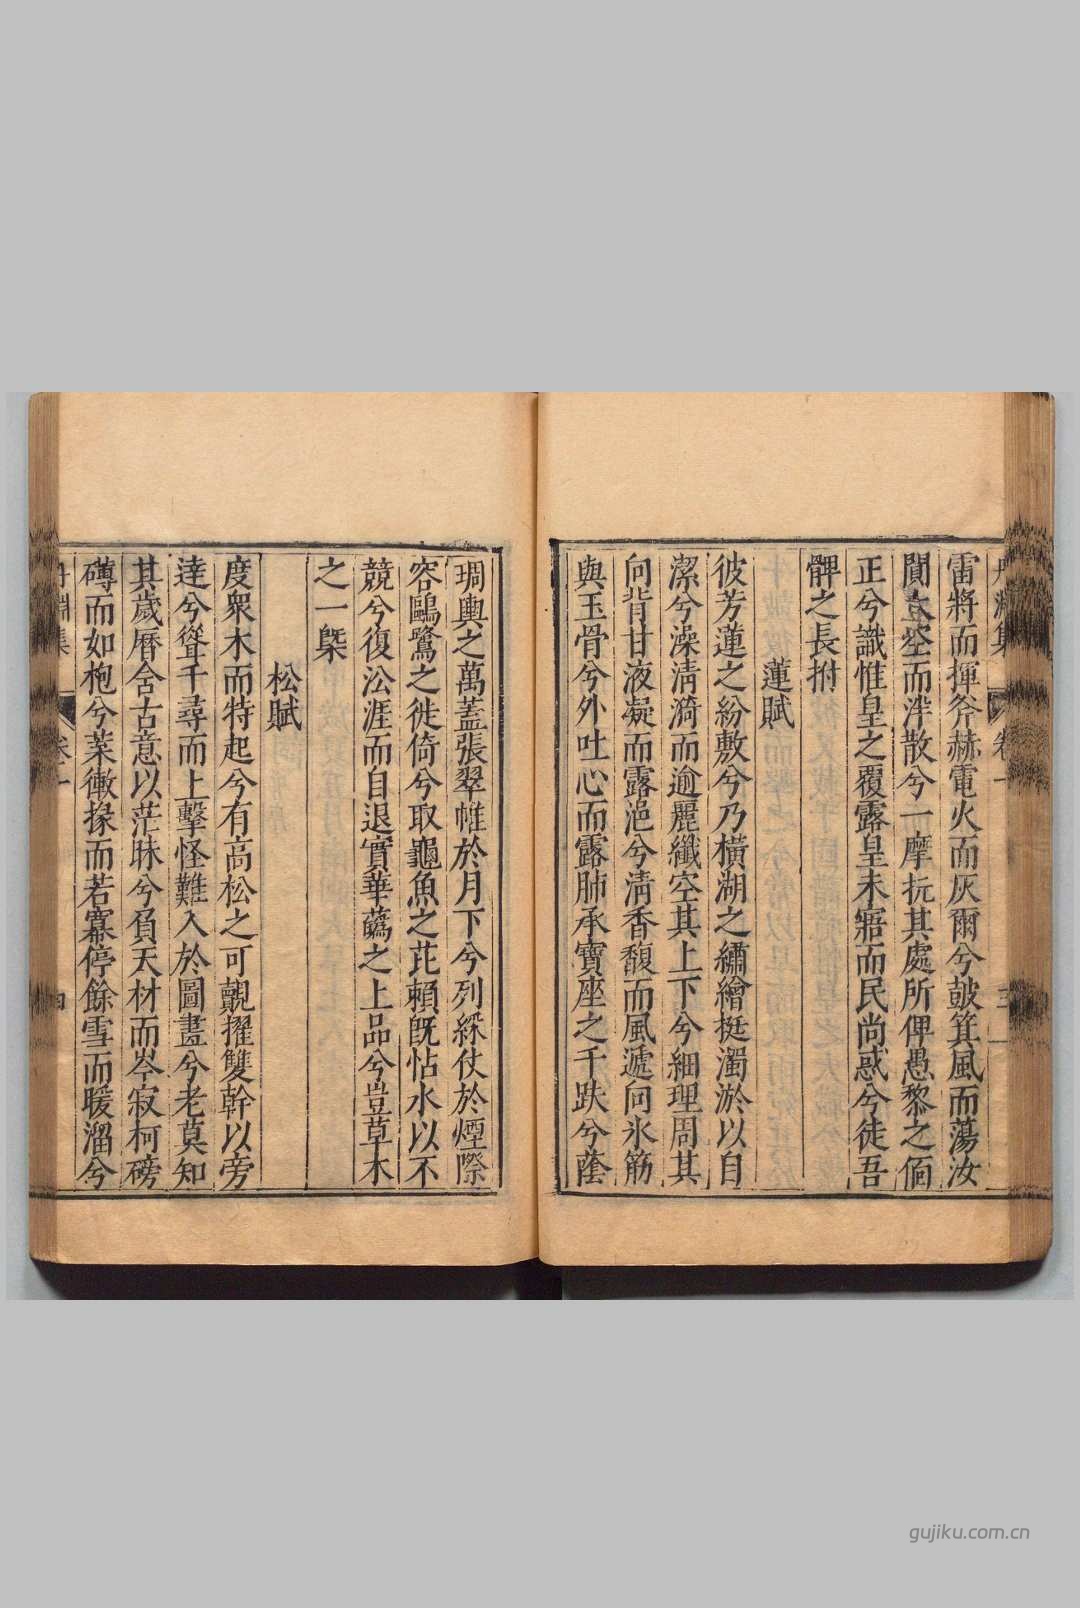 雷將而揮斧赫電火而灰爾兮皷箕風而蕩汝
閴太空而泮散兮一摩抗其處所俾愚黎之
正兮識惟皇之覆露皇未寤而民尚惑兮徒吾
髀之長拊
蓮賦
彼芳蓮之紛敷兮乃橫湖之繡繪挺濁淤以自
潔兮澡清漪而逾麗纖空其上下兮細理周其
向背甘液凝而露浥兮清香馥而風遞向氷筋
與玉骨兮外吐心而露肺承寶座之千趺兮蔭
琱輿之萬蓋張翠帷於月下兮列綵仗於煙際
容鷗鷺之徙倚兮取龜魚之茈賴旣怙水以不
競兮復㳂涯而自退實華蘤之上品兮豈草木
之一槩
松賦
度衆木而特起兮有高松之可覿擢雙幹以旁
達兮聳千尋而上擊怪難入於圖畫兮老莫知
其歲曆含古意以茫昧兮負天材而岑寂柯磅
礴而如枹兮葉㒈掾而若寡停餘雪而暖溜兮
丹淵集
卷一
三
四
gujiku.com.cn